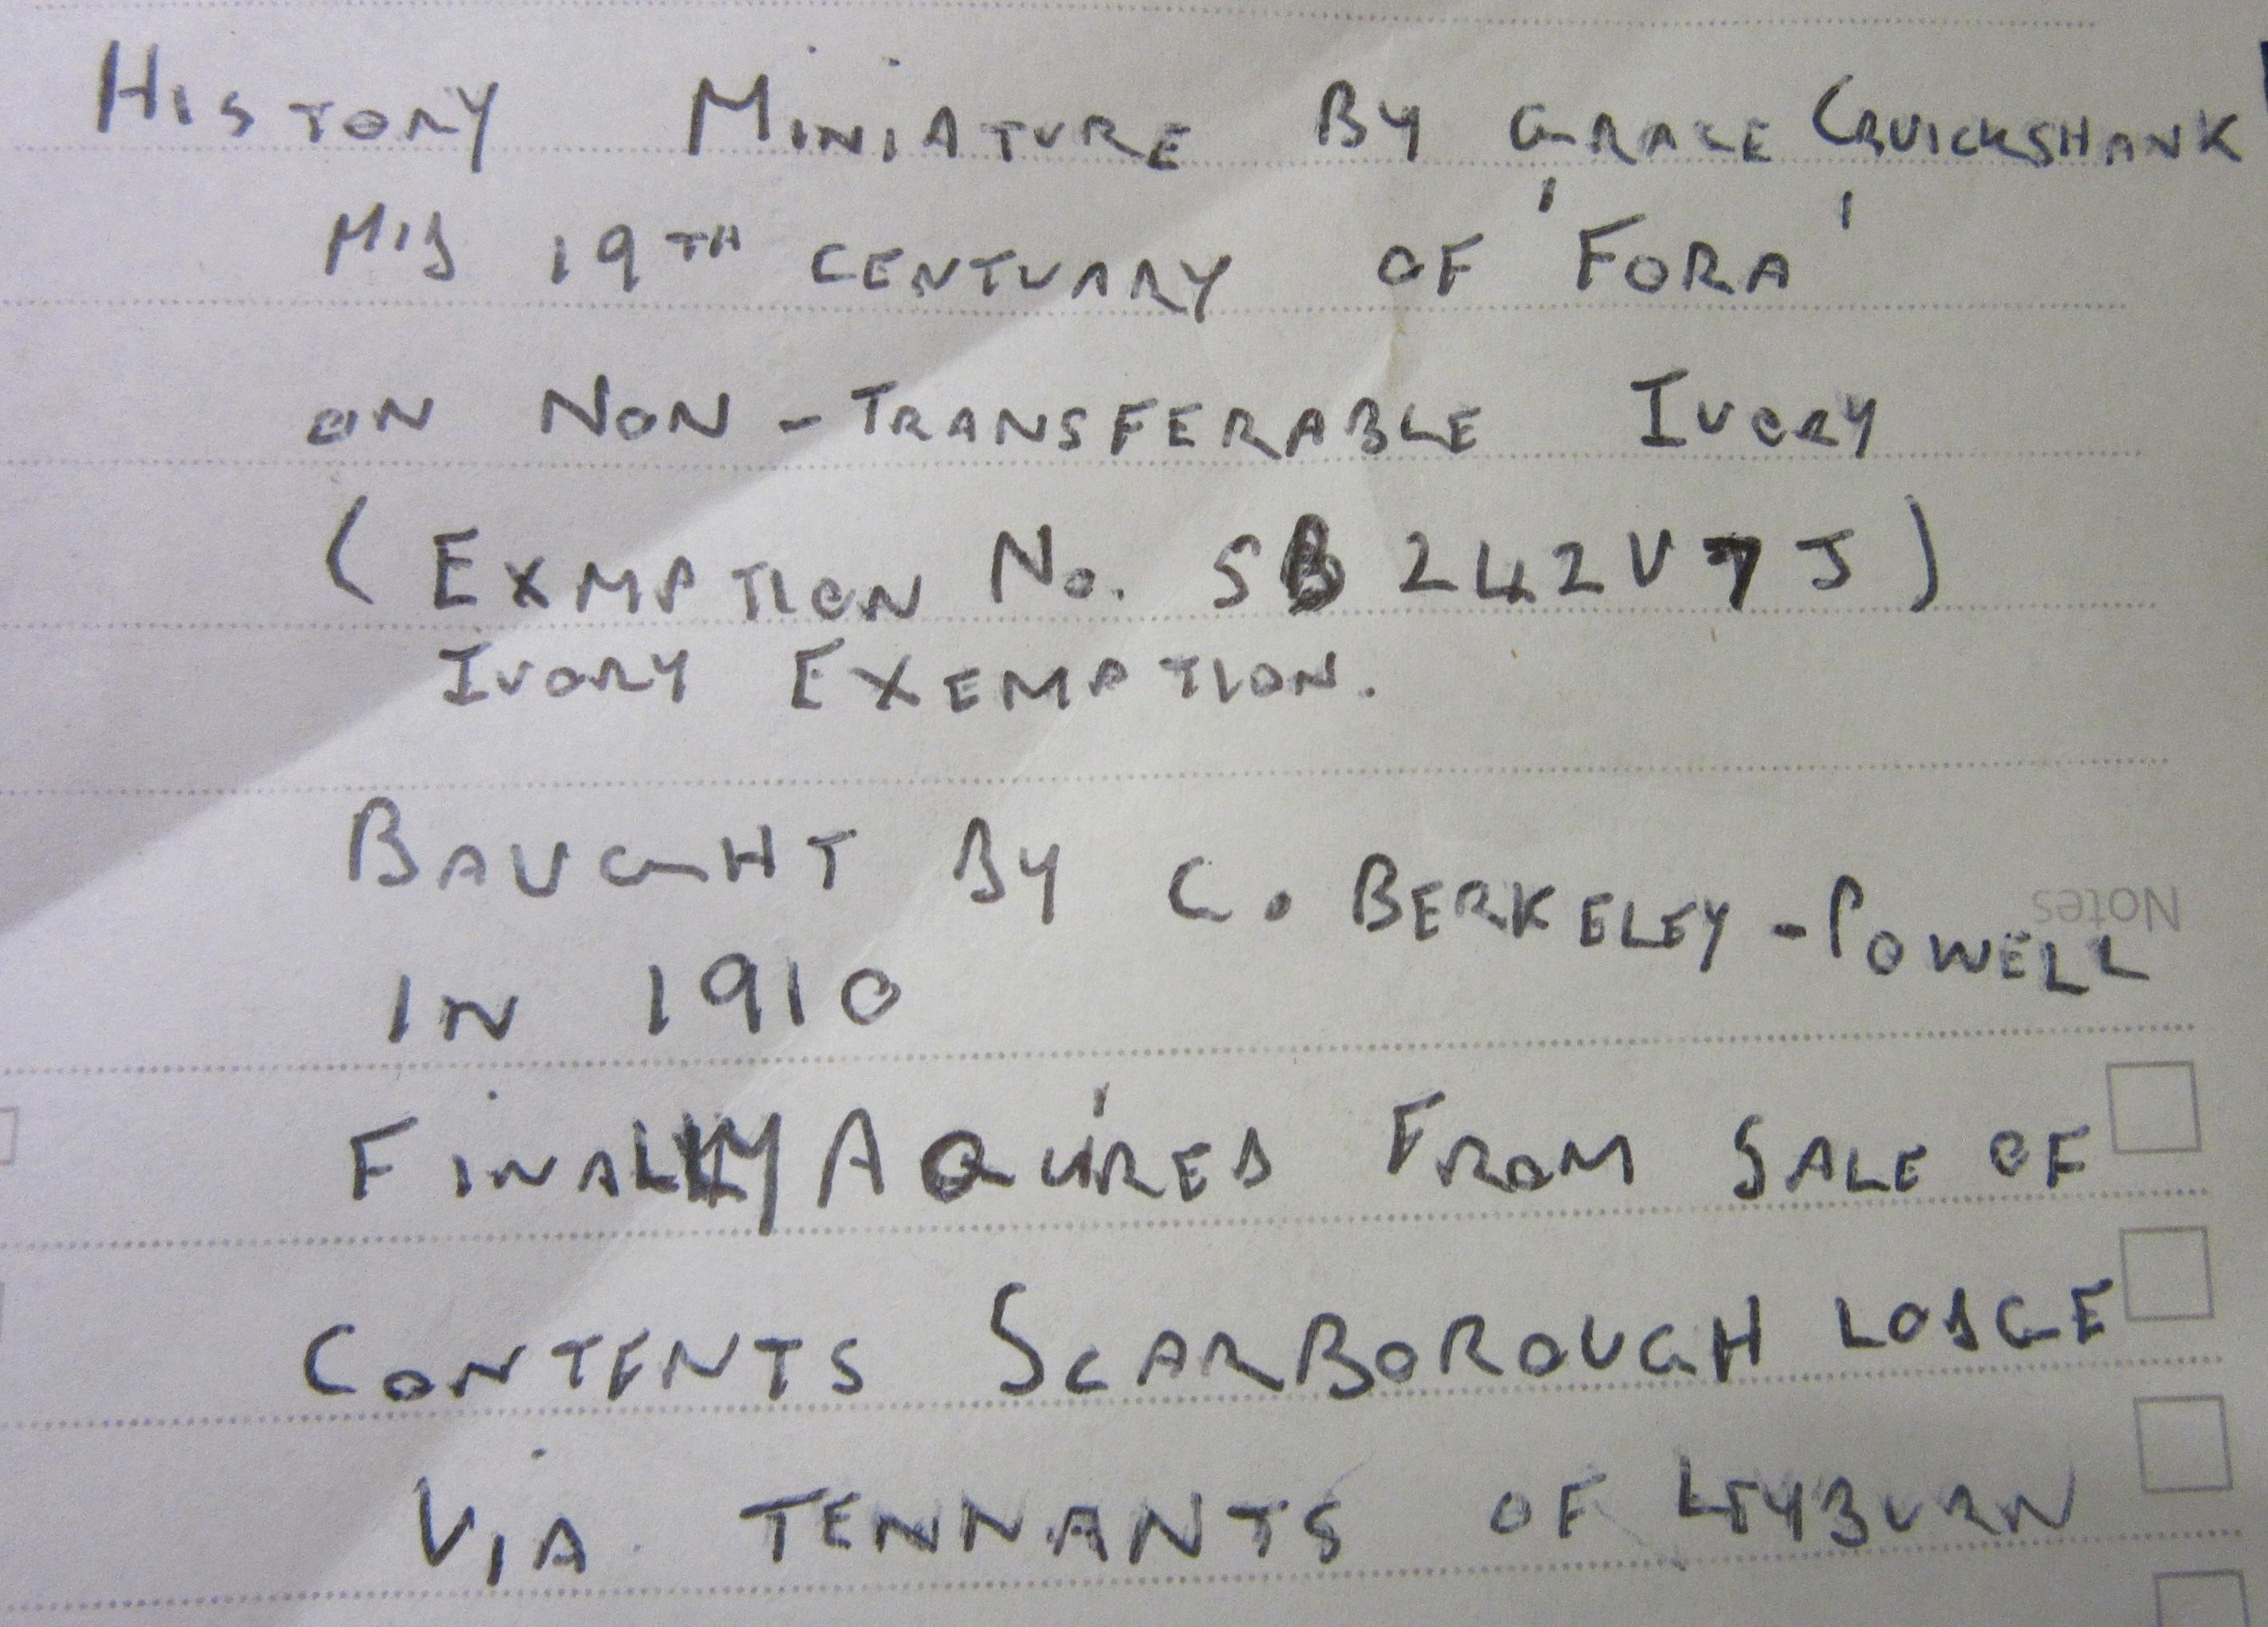 HISTORY MINIATURE BY GRACE CRUICKSHANK
MID 19TH CENTUARY OF 'FORA'
ON NON-TRANSFERABLE IVORY
(EXMPTION No. SB242V7J)
IVORY EXEMPTION.
BAUGHT BY C. BERKELEY-POWELL
Notes
IN 1910
FINALLY AQUIRED FROM SALE OF
CONTENTS SCARBOROUGH LODGE
VIA TENNANTS OF LEYBURN